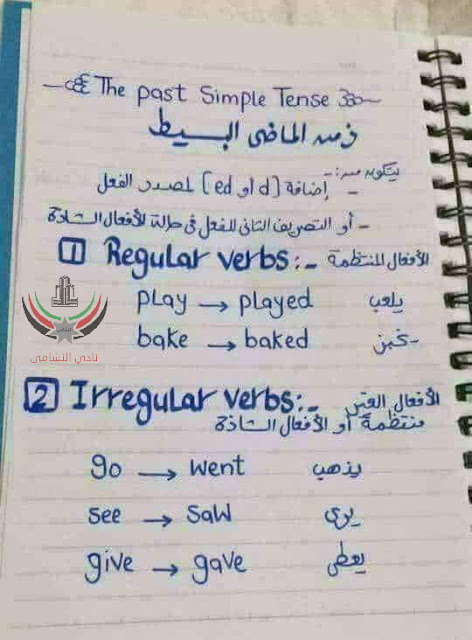 The past Simple Tense
زمن الماضى البسيط
يتكون من :-
- إضافة [d أو ed] لمصدر الفعل
- أو التصريف الثانى للفعل فى حالة الأفعال الشاذة
1 Regular verbs :- الأفعال المنتظمة
play → played يلعب
bake → baked يخبز
نادي النشامى
2 Irregular verbs :- الأفعال الغير
منتظمة أو الأفعال الشاذة
go → went يذهب
see → saw يرى
give → gave يعطى